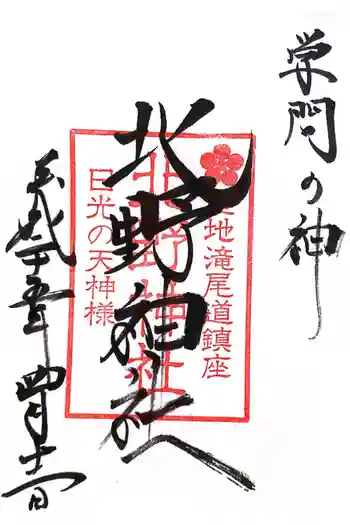 学問の神
北野神社
地滝尾道鎮座
北野神社
日光の天神様
平成二十五年四月十六日